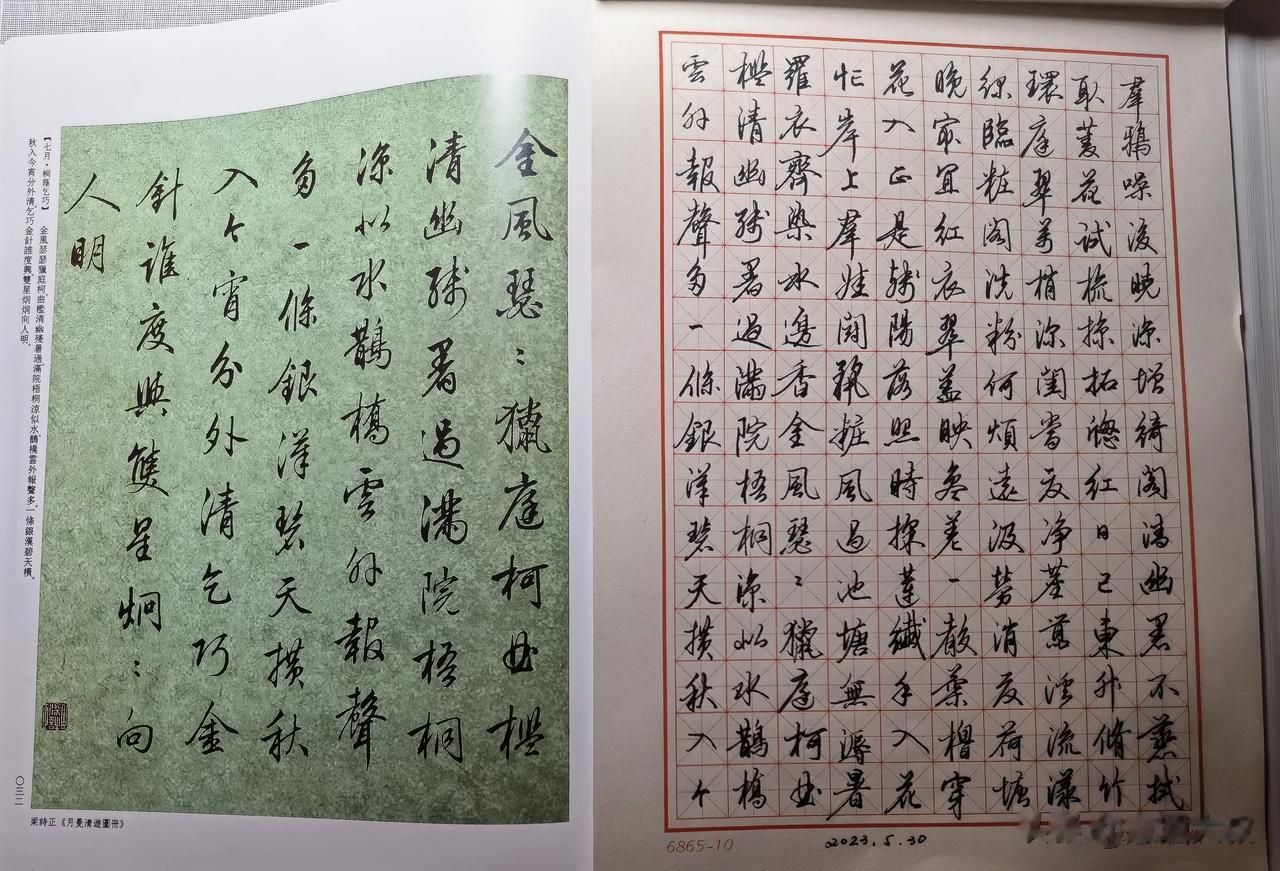 金風瑟〻獵庭柯曲檻
清幽殘暑過滿院梧桐
涼似水鵲橋雲外報聲
多一條銀漢碧天橫秋
入今宵分外清乞巧金
針誰度與雙星炯〻向
人明
【七月·桐蔭乞巧】 金風瑟瑟獵庭�。曲檻清幽殘暑過。滿院梧桐涼似水。鵲橋雲外報聲多。一條銀漢碧天橫。
秋入今宵分外清。乞巧金針誰度與。雙星炯炯向人明。
〇三二
梁詩正《月曼清遊圖冊》
羣鴉噪後曉涼增綺閣清幽暑不蒸拭
取菱花試梳掠拓窗紅日已東升脩竹
環庭翠梢涼閨當夏淨溪流漾
綠臨粧閣洗粉何煩遠汲勞消夏荷塘
晚最宜紅衣翠蓋映參差一聲柔櫓穿
花入正是殘陽落照時採蓮纖手入花
忙岸上羣娃鬪靚粧風過池塘無溽暑
羅衣齊染水邊香金風瑟〻獵庭柯曲
檻清幽殘暑過滿院梧桐涼似水鵲橋
雲外報聲多一條銀漢碧天橫秋入今
6865-10
2023.5.30